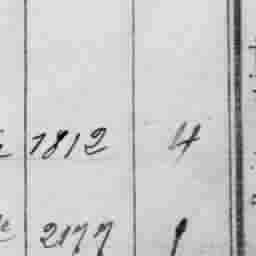 1812 4
2177 1